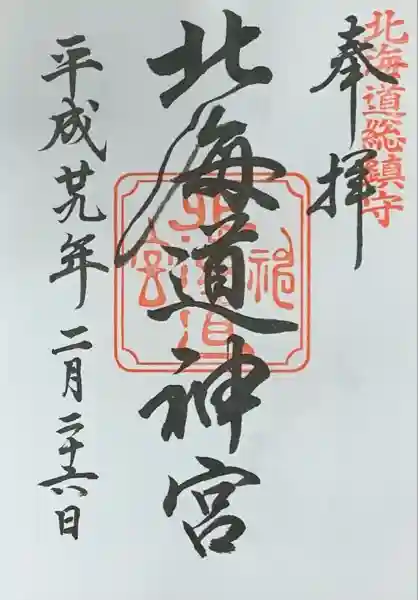 北海道総鎮守
奉拝
北海道神宮
北海道神宮
平成廿九年二月二十六日